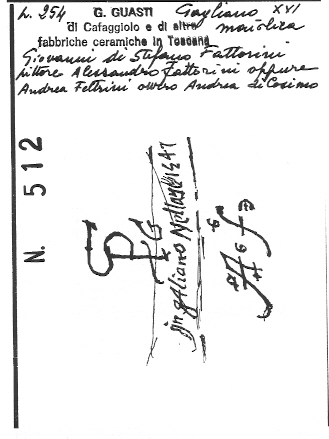 p. 254 G. GUASTI Gagliano XVI
di Cafaggiolo e di altre maiolica
fabbriche ceramiche in Toscana
Giovanni di Stefano Fattorini
pittore Alessandro Fattorini oppure
Andrea Feltrini ovvero Andrea di Cosimo
N. 512
In galiano
1547